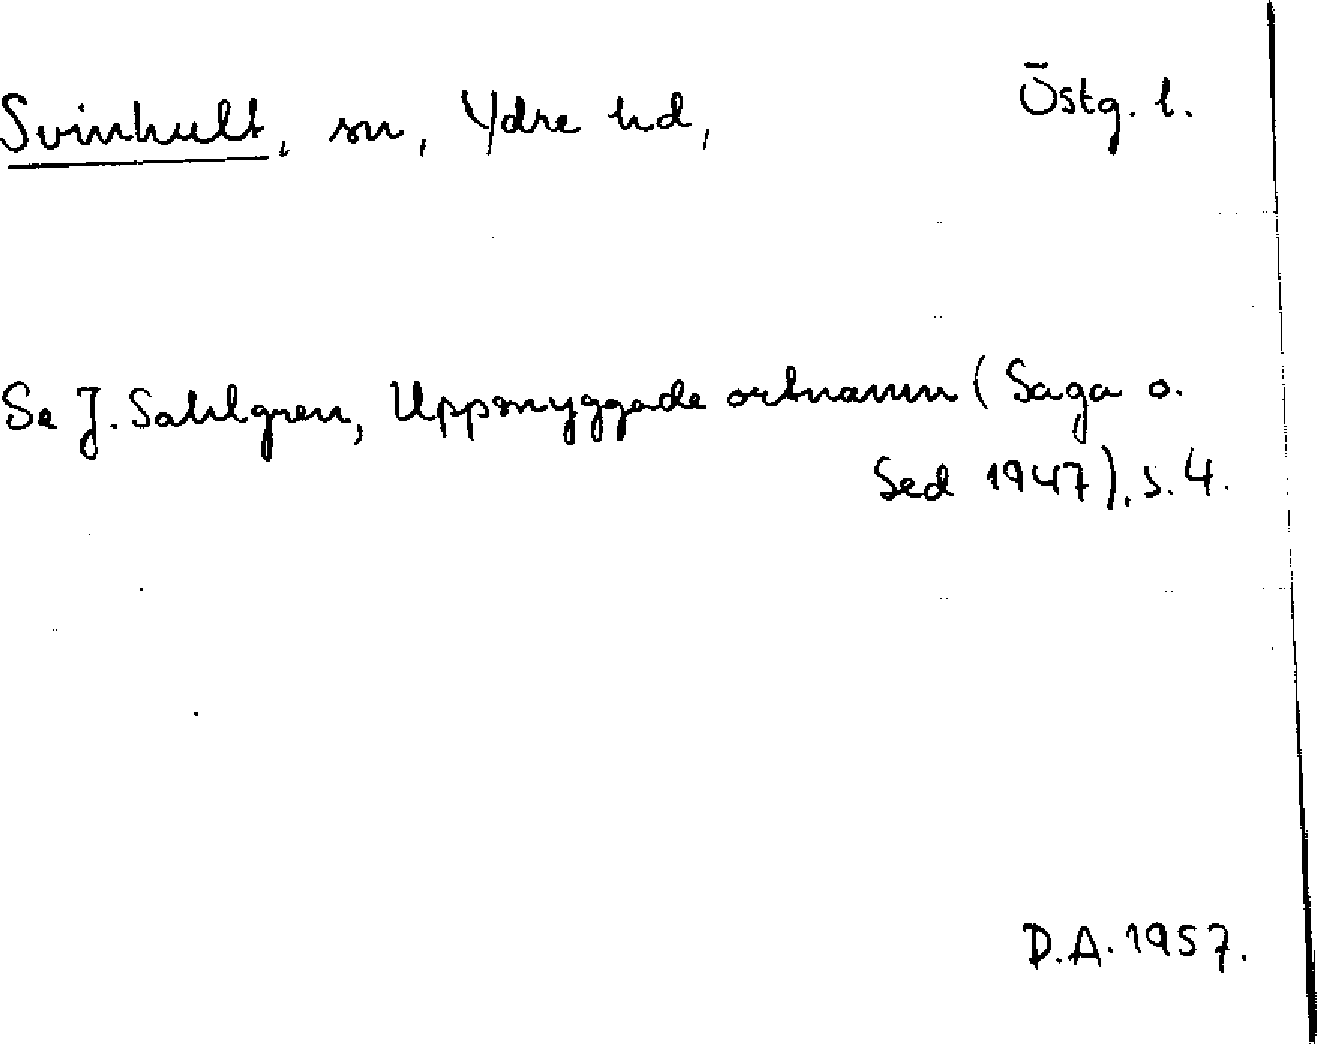 Svinhult, sn, Ydre hd, Östg. l.
Se J. Sahlgren, Uppsnyggade ortnamn (Saga o.
Sed 1947), s. 4.
D.A. 1957.